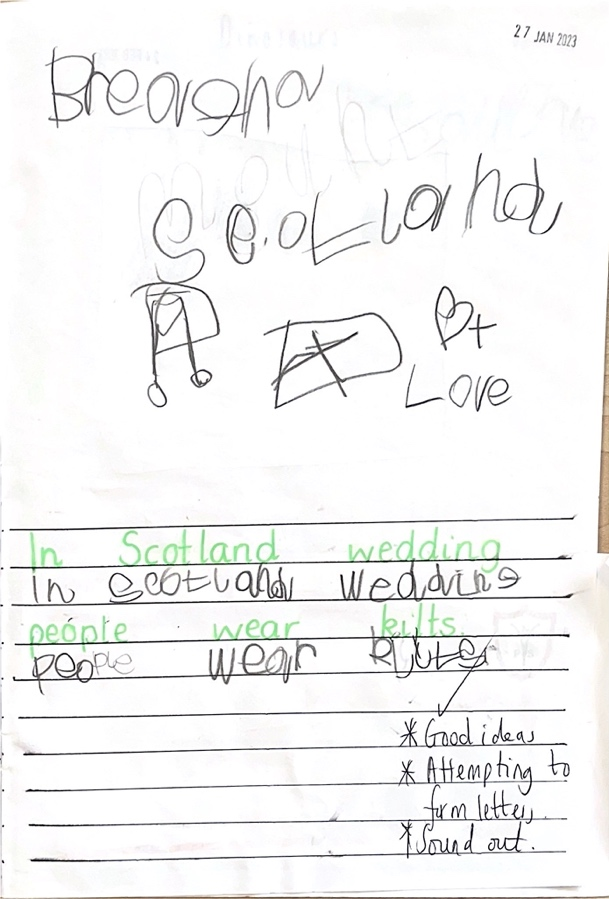 27 JAN 2023
Breagha
Scotland
Love
In Scotland wedding
in scotland wedding
people wear kilts.
people wear
* Good ideas
* Attempting to
form letters.
* Sound out.